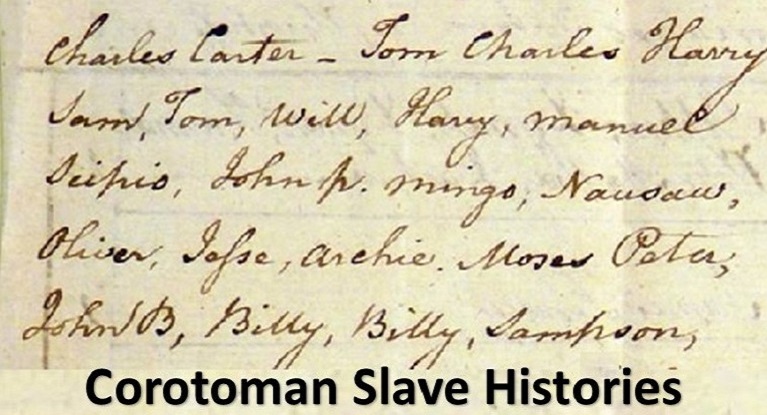 Charles Carter - Tom Charles Harry
Sam, Tom, Will, Harry, Manuel
Scipio, John p. Mingo, Nausaw,
Oliver, Jesse, Archie. Moses Peter,
John B, Billy, Billy, Sampson,
Corotoman Slave Histories